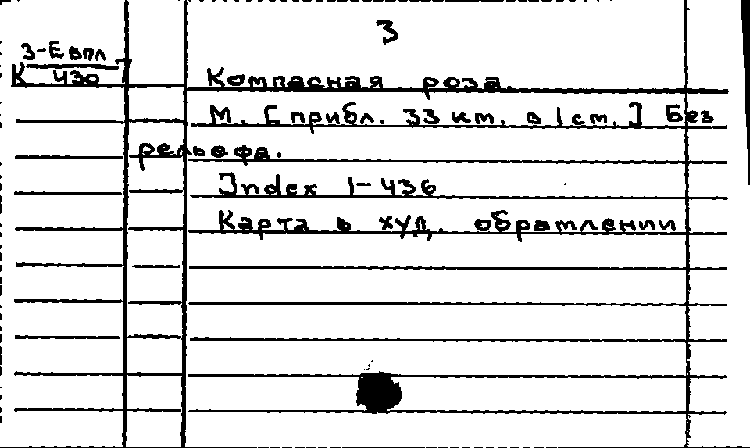 3
3-Евпл
К 430
Компасная роза.
М. [прибл. 33 км. в 1 см.] Без
рельефа.
Index 1-436
Карта в худ. обрамлении